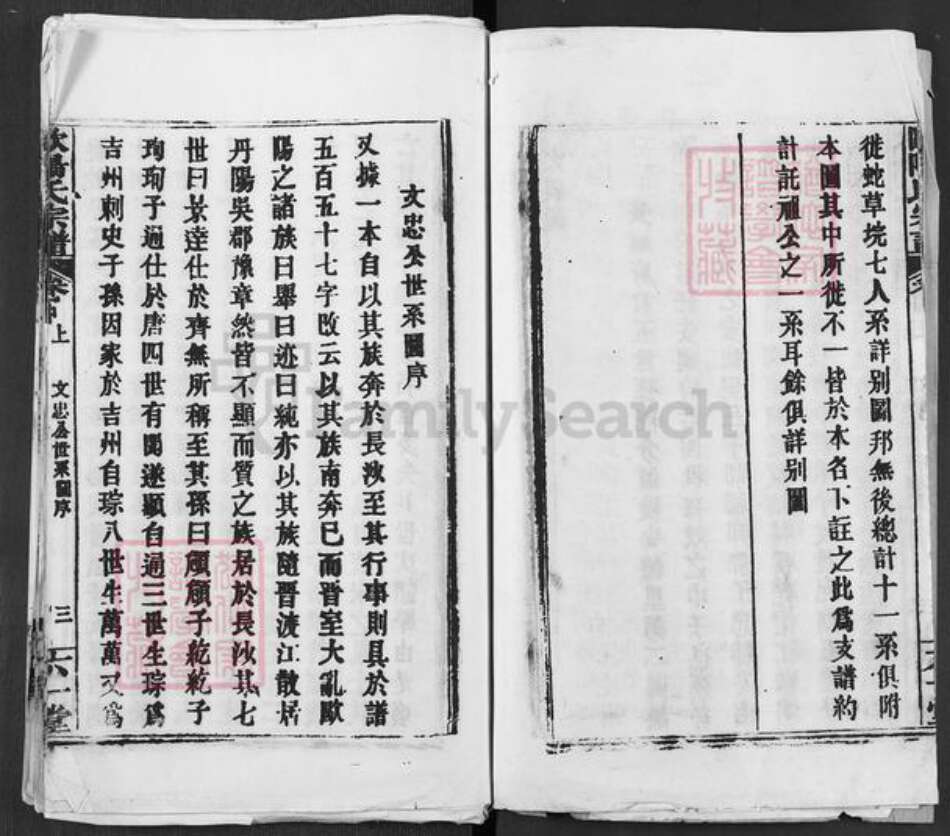 徙蛇草垸七人系詳别圖邦無後總計十一系俱附
本圖其中所徙不一皆於本名下註之此爲支譜約
計託祖公之一系耳餘俱詳别圖
文忠公世系圖序
又據一本自以其族奔於長沙至其行事則具於譜
五百五十七字改云以其族南奔巳而晉室大亂歐
陽之諸族曰舉曰逊曰純亦以其族隨晉渡江散居
丹陽吳郡豫章然皆不顯而質之族居於長沙其七
世曰景達仕於齊無所稱至其孫曰頠頠子紇紇子
珣珣子通仕於唐四世有聞遂顯自通三世生琮爲
吉州刺史子孫因家於吉州自琮八世生萬萬又爲
歐陽氏宗譜
上
文忠公世系圖序
三
六一堂
FamilySearch